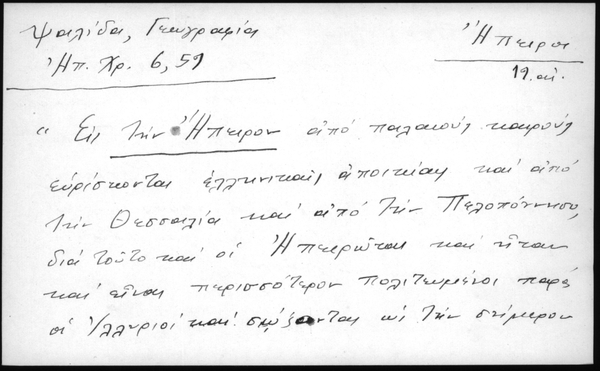 Ψαλίδα, Γεωγραφία
Ἠπ. Χρ. 6, 59
Ἤπειρος
19 αἰ.
“ Εἰς τὴν Ἤπειρον ἀπό παλαιούς καιρούς
εὑρίσκονται ἑλληνικαὶ ἀποικίαι καί ἀπό
τὴν Θεσσαλία καί ἀπό τὴν Πελοπόννησο,
διά τοῦτο καί οἱ Ἠπειρῶται καί ἦταν
καί εἶναι περισσότερον πολιτευμένοι παρά
οἱ Ἰλλυριοί καί σῴζονται ὡς τὴν σήμερον